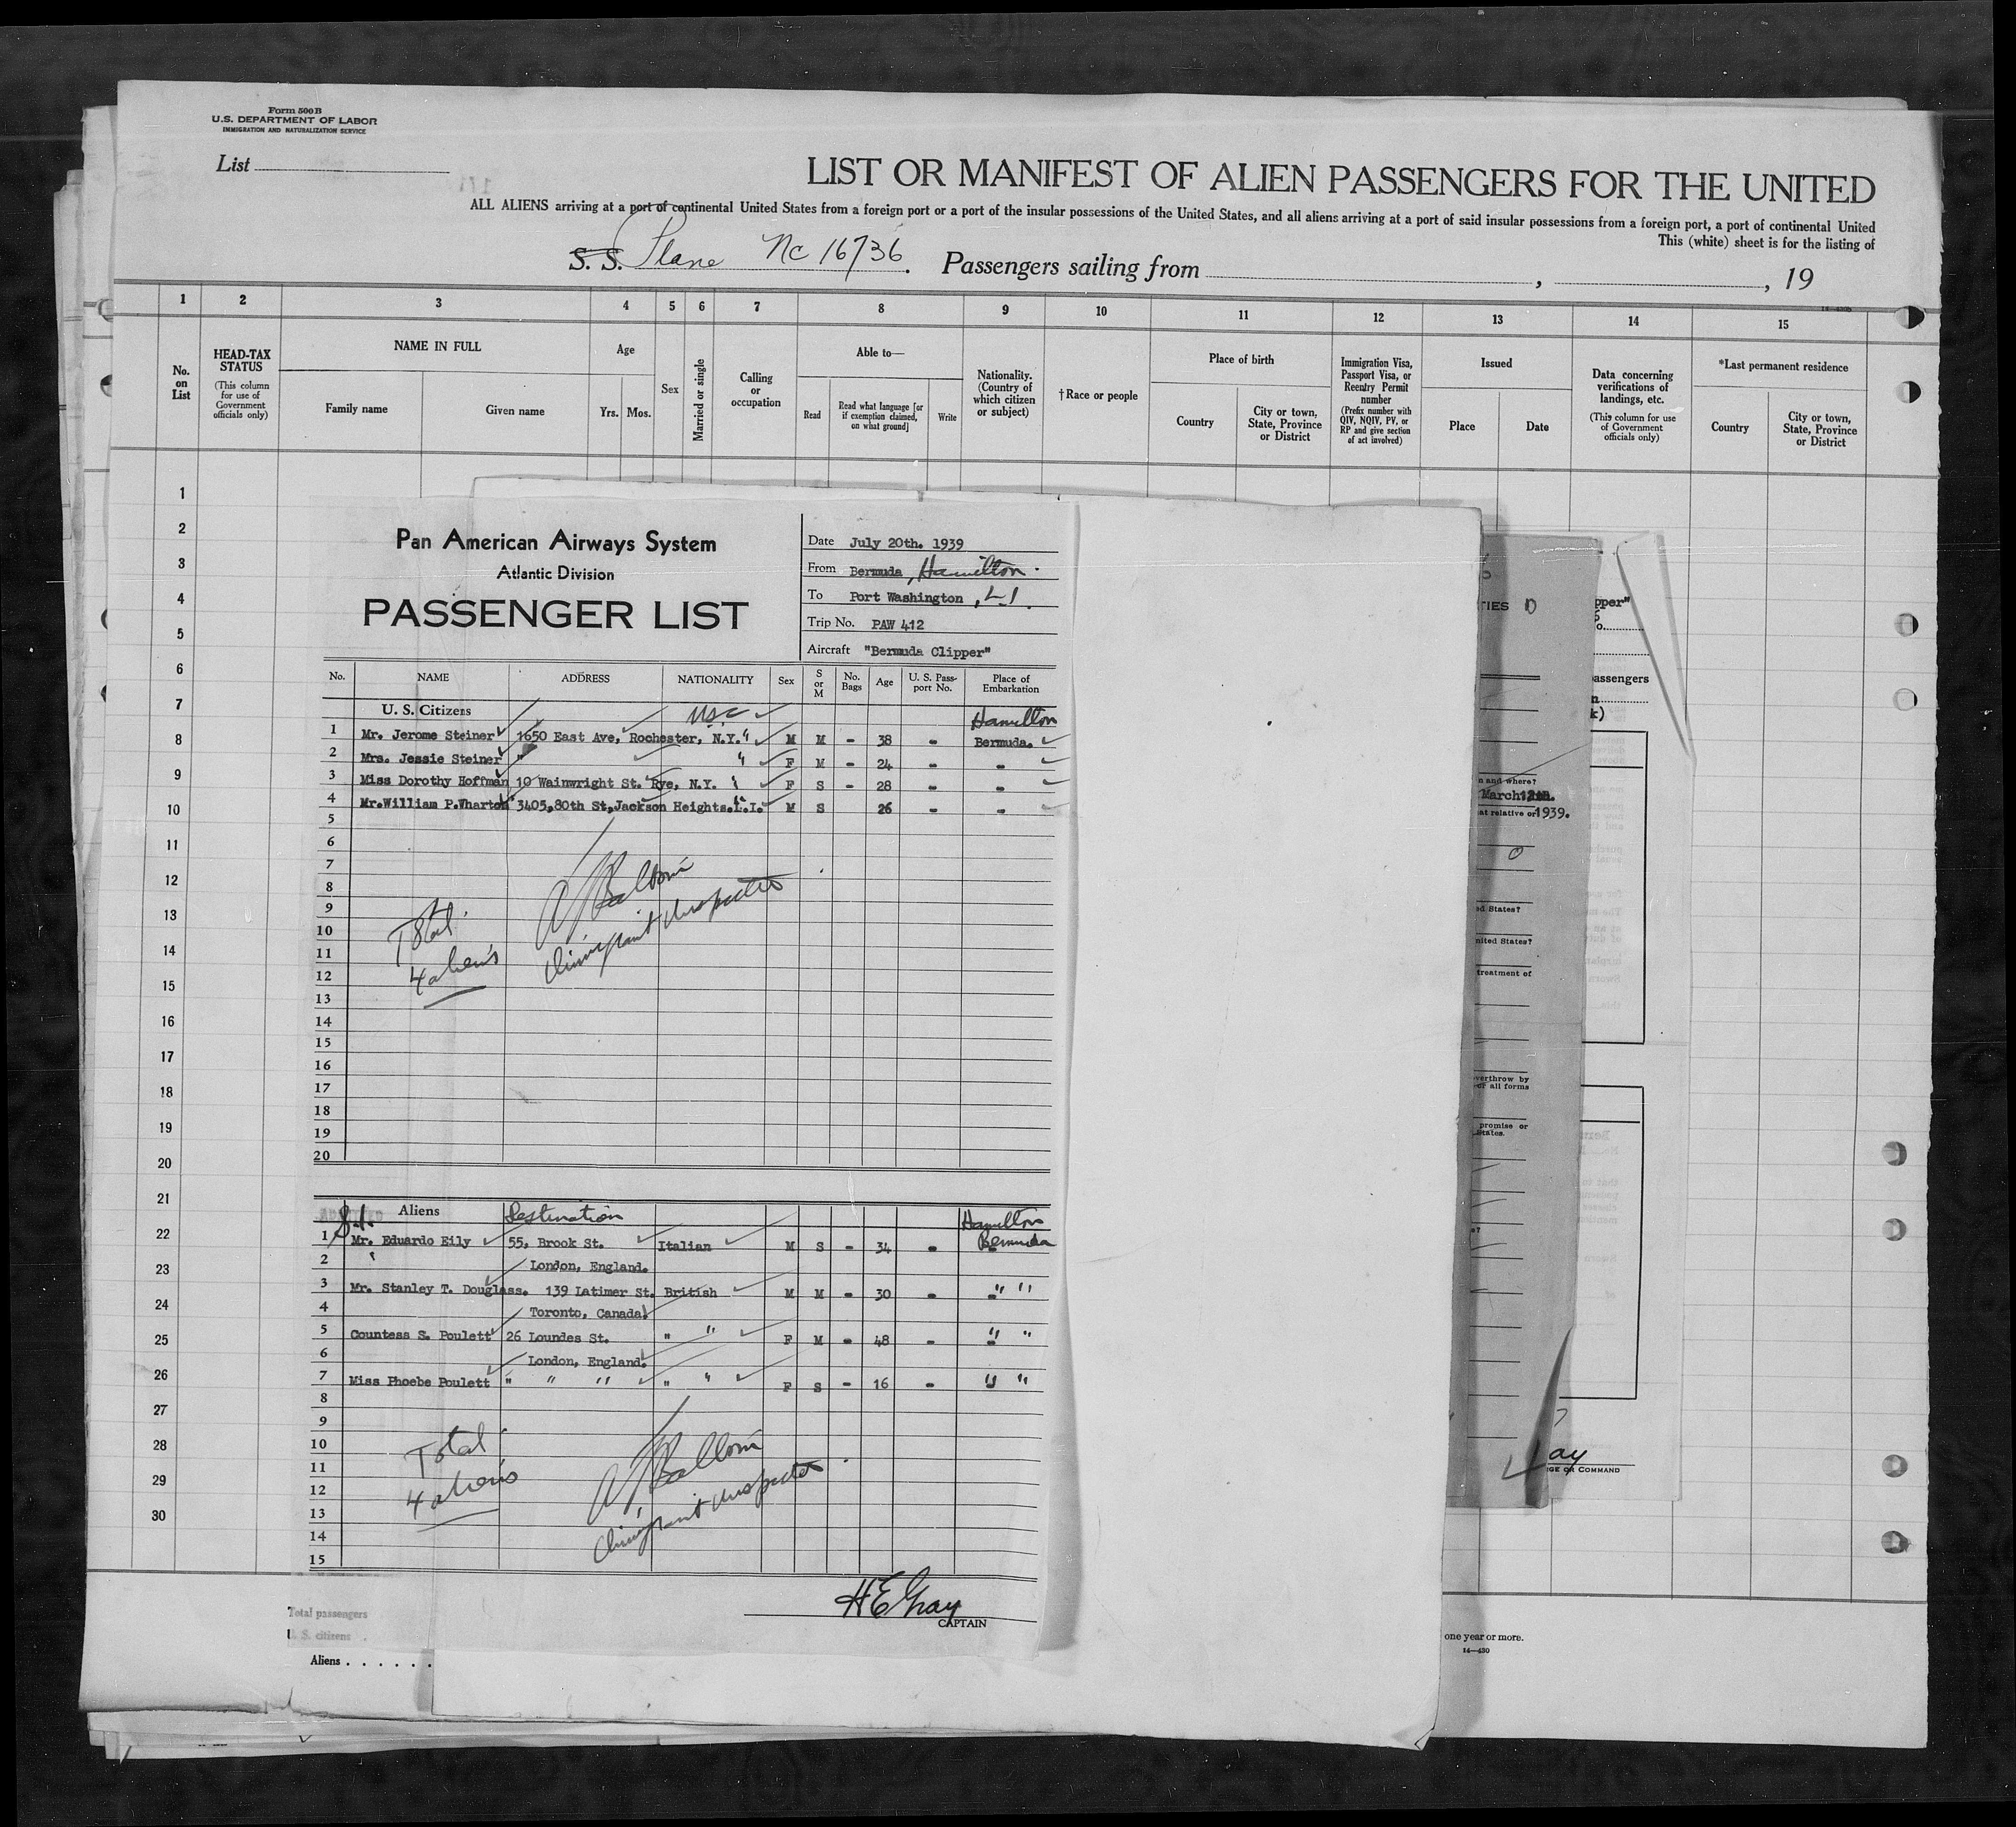 Form 500 B
U.S. DEPARTMENT OF LABOR
IMMIGRATION AND NATURALIZATION SERVICE
List
LIST OR MANIFEST OF ALIEN PASSENGERS FOR THE UNITED
ALL ALIENS arriving at a port of continental United States from a foreign port or a port of the insular possessions of the United States, and all aliens arriving at a port of said insular possessions from a foreign port, a port of continental United
This (white) sheet is for the listing of
S. S. Plane NC 16736. Passengers sailing from , , 19
1 2 3 4 5 6 7 8 9 10 11 12 13 14 15
No. on List
HEAD-TAX STATUS
(This column for use of Government officials only)
NAME IN FULL
Family name
Given name
Age
Yrs. Mos.
Sex
Married or single
Calling or occupation
Able to—
Read
Read what language [or if exemption claimed, on what ground]
Write
Nationality. (Country of which citizen or subject)
†Race or people
Place of birth
Country
City or town, State, Province or District
Immigration Visa, Passport Visa, or Reentry Permit number
(Prefix number with QIV, NQIV, PV, or RP and give section of act involved)
Issued
Place
Date
Data concerning verifications of landings, etc.
(This column for use of Government officials only)
*Last permanent residence
Country
City or town, State, Province or District
1
2
3
4
5
6
7
8
9
10
11
12
13
14
15
16
17
18
19
20
21
22
23
24
25
26
27
28
29
30
Pan American Airways System
Atlantic Division
PASSENGER LIST
Date July 20th. 1939
From Bermuda, Hamilton.
To Port Washington, L.I.
Trip No. PAW 412
Aircraft "Bermuda Clipper"
No. NAME ADDRESS NATIONALITY Sex S or M No. Bags Age U. S. Passport No. Place of Embarkation
U. S. Citizens USC Hamilton
1 Mr. Jerome Steiner 1650 East Ave, Rochester, N.Y. " M M - 38 - Bermuda.
2 Mrs. Jessie Steiner " " F M - 24 - -
3 Miss Dorothy Hoffman 10 Wainwright St. Rye, N.Y. " F S - 28 - -
4 Mr.William P.Wharton 3405,80th St,Jackson Heights.L.I. M S 26 - -
5
6
7
8
9
10
11
12
13
14
15
16
17
18
19
20
Total
4 aliens
Immigrant Inspector
Aliens Destination Hamilton
1 Mr. Eduardo Eily 55, Brook St. Italian M S - 34 - Bermuda
2 London, England.
3 Mr. Stanley T. Douglass. 139 Latimer St. British M M - 30 - " "
4 Toronto, Canada.
5 Countess S. Poulett 26 Loundes St. " " F M - 48 - " "
6 London, England.
7 Miss Phoebe Poulett " " " " " F S - 16 - " "
8
9
10
11
12
13
14
15
Total
4 aliens
Immigrant Inspector
H E Gray
CAPTAIN
Total passengers
U. S. citizens .
Aliens . . . . . .
TIES
pper"
o.
assengers
n and where?
March 12th.
at relative or 1939.
ed States?
nited States?
treatment of
verthrow by
or all forms
promise or
States.
ay
RGE OR COMMAND
one year or more.
14—430